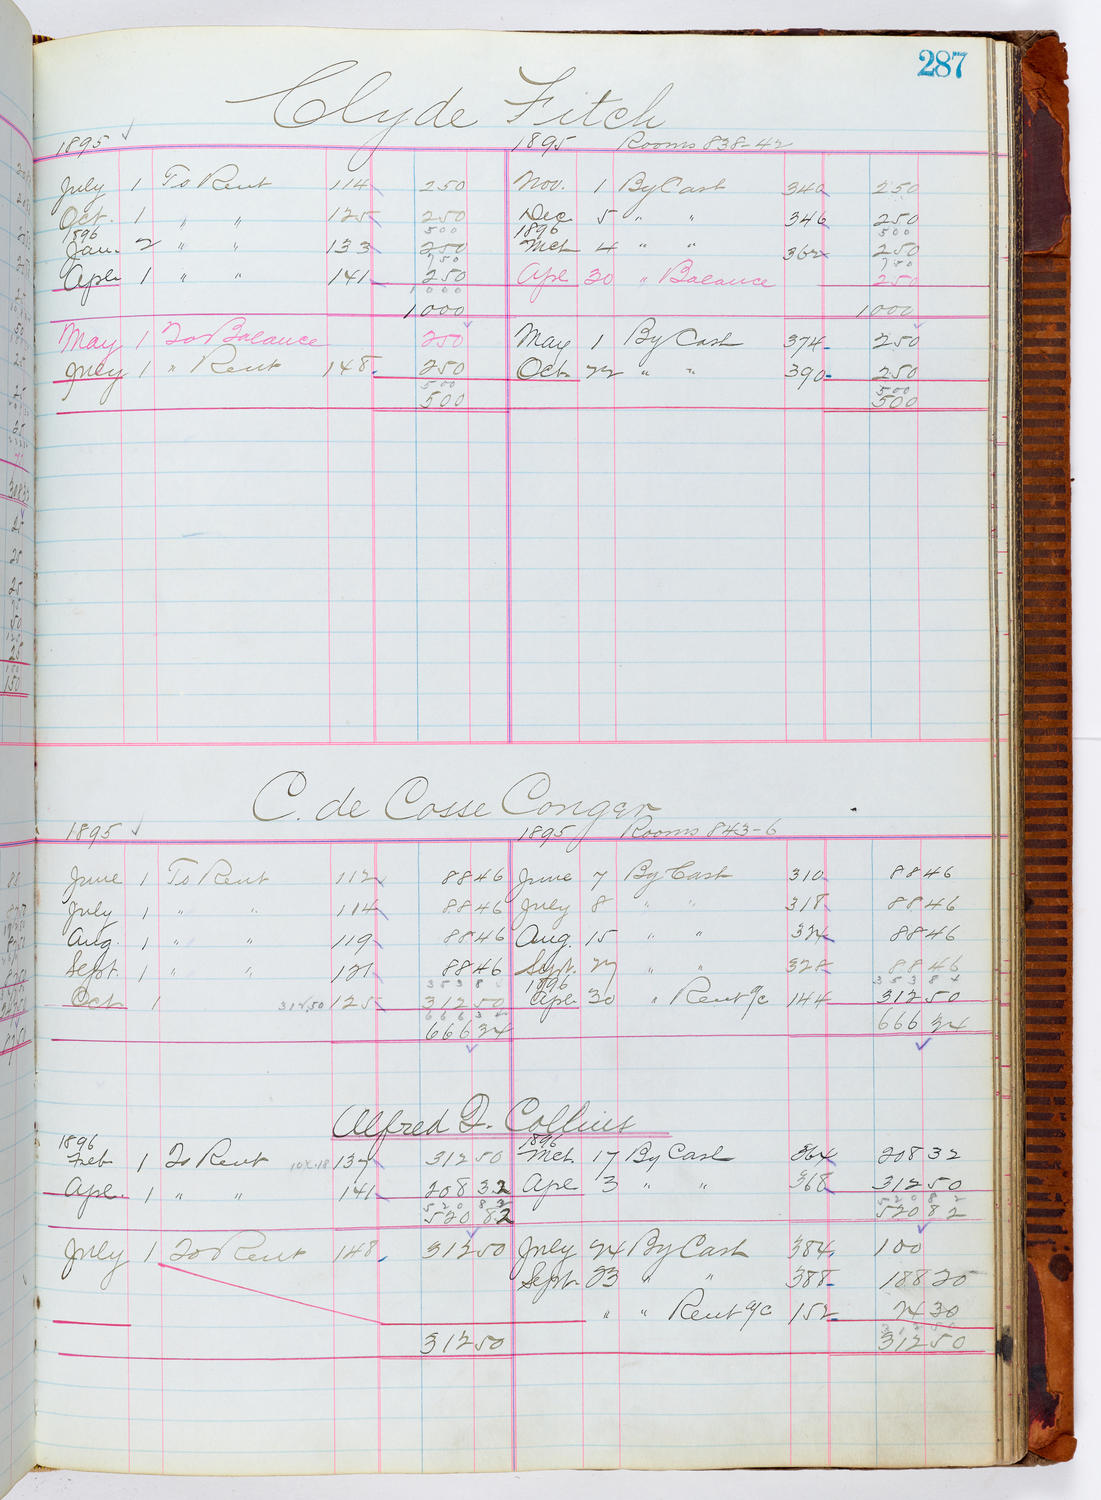 287
Clyde Fitch
1895 1895 Rooms 838-42
July 1 To Rent 114 250 Nov. 1 By Cash 340 250
Oct. 1 " " 125 250 Dec 5 " " 346 250
500 500
1896 1896
Jan. 2 " " 133 250 Mch 4 " " 362 250
750 750
Apl 1 " " 141 250 Apl 30 " Balance 250
1000
1000 1000
May 1 To Balance 250 May 1 By Cash 374 250
July 1 " Rent 148 250 Oct. 22 " " 390 250
500 500
500 500
C. de Cosse Conger
1895 1895 Rooms 843-6
June 1 To Rent 112 88 46 June 7 By Cash 310 88 46
July 1 " " 114 88 46 July 8 " " 318 88 46
Aug. 1 " " 119 88 46 Aug. 15 " " 324 88 46
Sept. 1 " " 121 88 46 Sept. 27 " " 328 88 46
353 84 353 84
1896
Oct 1 312,50 125 312 50 Apl 30 " Rent a/c 144 312 50
666 34
666 34 666 34
Alfred F. Collins
1896 1896
Feb. 1 To Rent 137 312 50 Mch. 17 By Cash 364 208 32
Apl. 1 " " 141 208 32 Apl 3 " " 368 312 50
520 82 520 82
520 82 520 82
July 1 To Rent 148 312 50 July 24 By Cash 384 100
Sept. 23 " " 388 188 20
" " Rent a/c 152 24 30
312 50 312 50